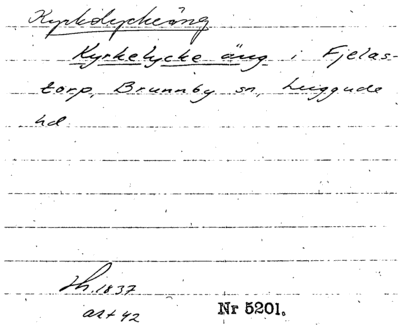 Kyrkolyckeäng
Kyrkelycke äng i Fjelas-
torp, Brunnby sn, Luggude
hd
Lh. 1837
akt 42
Nr 5201.